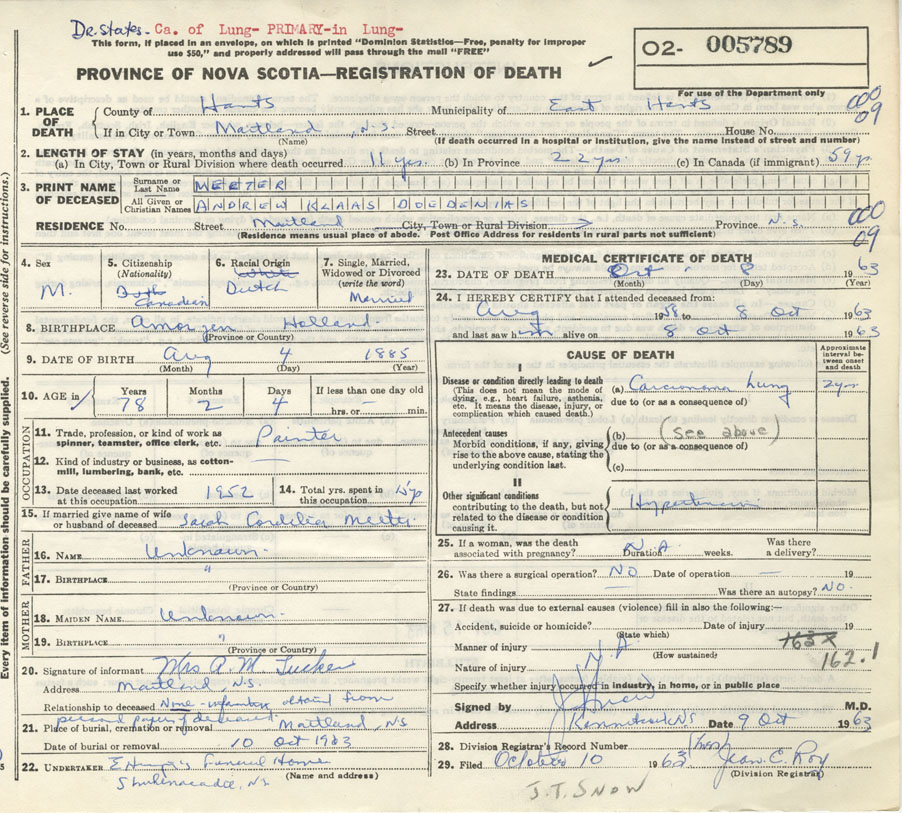 Dr. States. Ca. of Lung- PRIMARY-in Lung-
This form, if placed in an envelope, on which is printed "Dominion Statistics—Free, penalty for improper
use $50," and properly addressed will pass through the mail "FREE"
PROVINCE OF NOVA SCOTIA—REGISTRATION OF DEATH
02- 005789
For use of the Department only
1. PLACE OF DEATH County of Hants Municipality of East Hants 000
If in City or Town Maitland, N.S. Street House No. 09
(Name) (If death occurred in a hospital or Institution, give the name instead of street and number)
2. LENGTH OF STAY (in years, months and days)
(a) In City, Town or Rural Division where death occurred 11 yrs. (b) In Province 22 yrs. (c) In Canada (if immigrant) 59 yr
3. PRINT NAME OF DECEASED Surname or Last Name MEETER
All Given or Christian Names ANDREW KLAAS DOEDENIAS
RESIDENCE No. Street Maitland City, Town or Rural Division Province N.S. 000
(Residence means usual place of abode. Post Office Address for residents in rural parts not sufficient) 09
4. Sex M.
5. Citizenship (Nationality) Canadian
6. Racial Origin Dutch
7. Single, Married, Widowed or Divorced (write the word) Married
8. BIRTHPLACE Holland
(Province or Country)
9. DATE OF BIRTH Aug 4 1885
(Month) (Day) (Year)
10. AGE in Years 78 Months 2 Days 4 If less than one day old — hrs. or min.
OCCUPATION
11. Trade, profession, or kind of work as spinner, teamster, office clerk, etc. Painter
12. Kind of industry or business, as cotton-mill, lumbering, bank, etc. —
13. Date deceased last worked at this occupation 1952 14. Total yrs. spent in this occupation 15 yr
15. If married give name of wife or husband of deceased Sarah Cordelia Meeter
FATHER
16. NAME Unknown
17. BIRTHPLACE "
(Province or Country)
MOTHER
18. MAIDEN NAME Unknown
19. BIRTHPLACE "
(Province or Country)
20. Signature of informant Mrs A. M. Tucker
Address Maitland, N.S.
Relationship to deceased None - obtained from
personal papers of deceased
21. Place of burial, cremation or removal Maitland, NS
Date of burial or removal 10 Oct 1963
22. UNDERTAKER Funeral Home
(Name and address)
Shubenacadie, N.S.
MEDICAL CERTIFICATE OF DEATH
23. DATE OF DEATH Oct 8 1963
(Month) (Day) (Year)
24. I HEREBY CERTIFY that I attended deceased from:
Aug 1958 to 8 Oct 1963
and last saw him alive on 8 Oct 1963
CAUSE OF DEATH
Approximate interval between onset and death
I
Disease or condition directly leading to death (a) Carcinoma Lung 2 yrs
(This does not mean the mode of dying, e.g., heart failure, asthenia, etc. It means the disease, injury, or complication which caused death.) due to (or as a consequence of)
Antecedent causes (b) (see above)
Morbid conditions, if any, giving rise to the above cause, stating the underlying condition last. due to (or as a consequence of)
(c)
II
Other significant conditions
contributing to the death, but not related to the disease or condition causing it. Hypertension
25. If a woman, was the death associated with pregnancy? N.A. Duration weeks. Was there a delivery?
26. Was there a surgical operation? NO Date of operation — 19
State findings — Was there an autopsy? NO.
27. If death was due to external causes (violence) fill in also the following:—
Accident, suicide or homicide? Date of injury 19
(State which)
Manner of injury N.A 163X
(How sustained) 162.1
Nature of injury
Specify whether injury occurred in industry, in home, or in public place
Signed by J T Snow M.D.
Address Kennetcook NS Date 9 Oct 1963
28. Division Registrar's Record Number
29. Filed October 10 1963 Jean C. Roy
(Division Registrar)
J.T. SNOW
Every item of information should be carefully supplied. (See reverse side for instructions.)